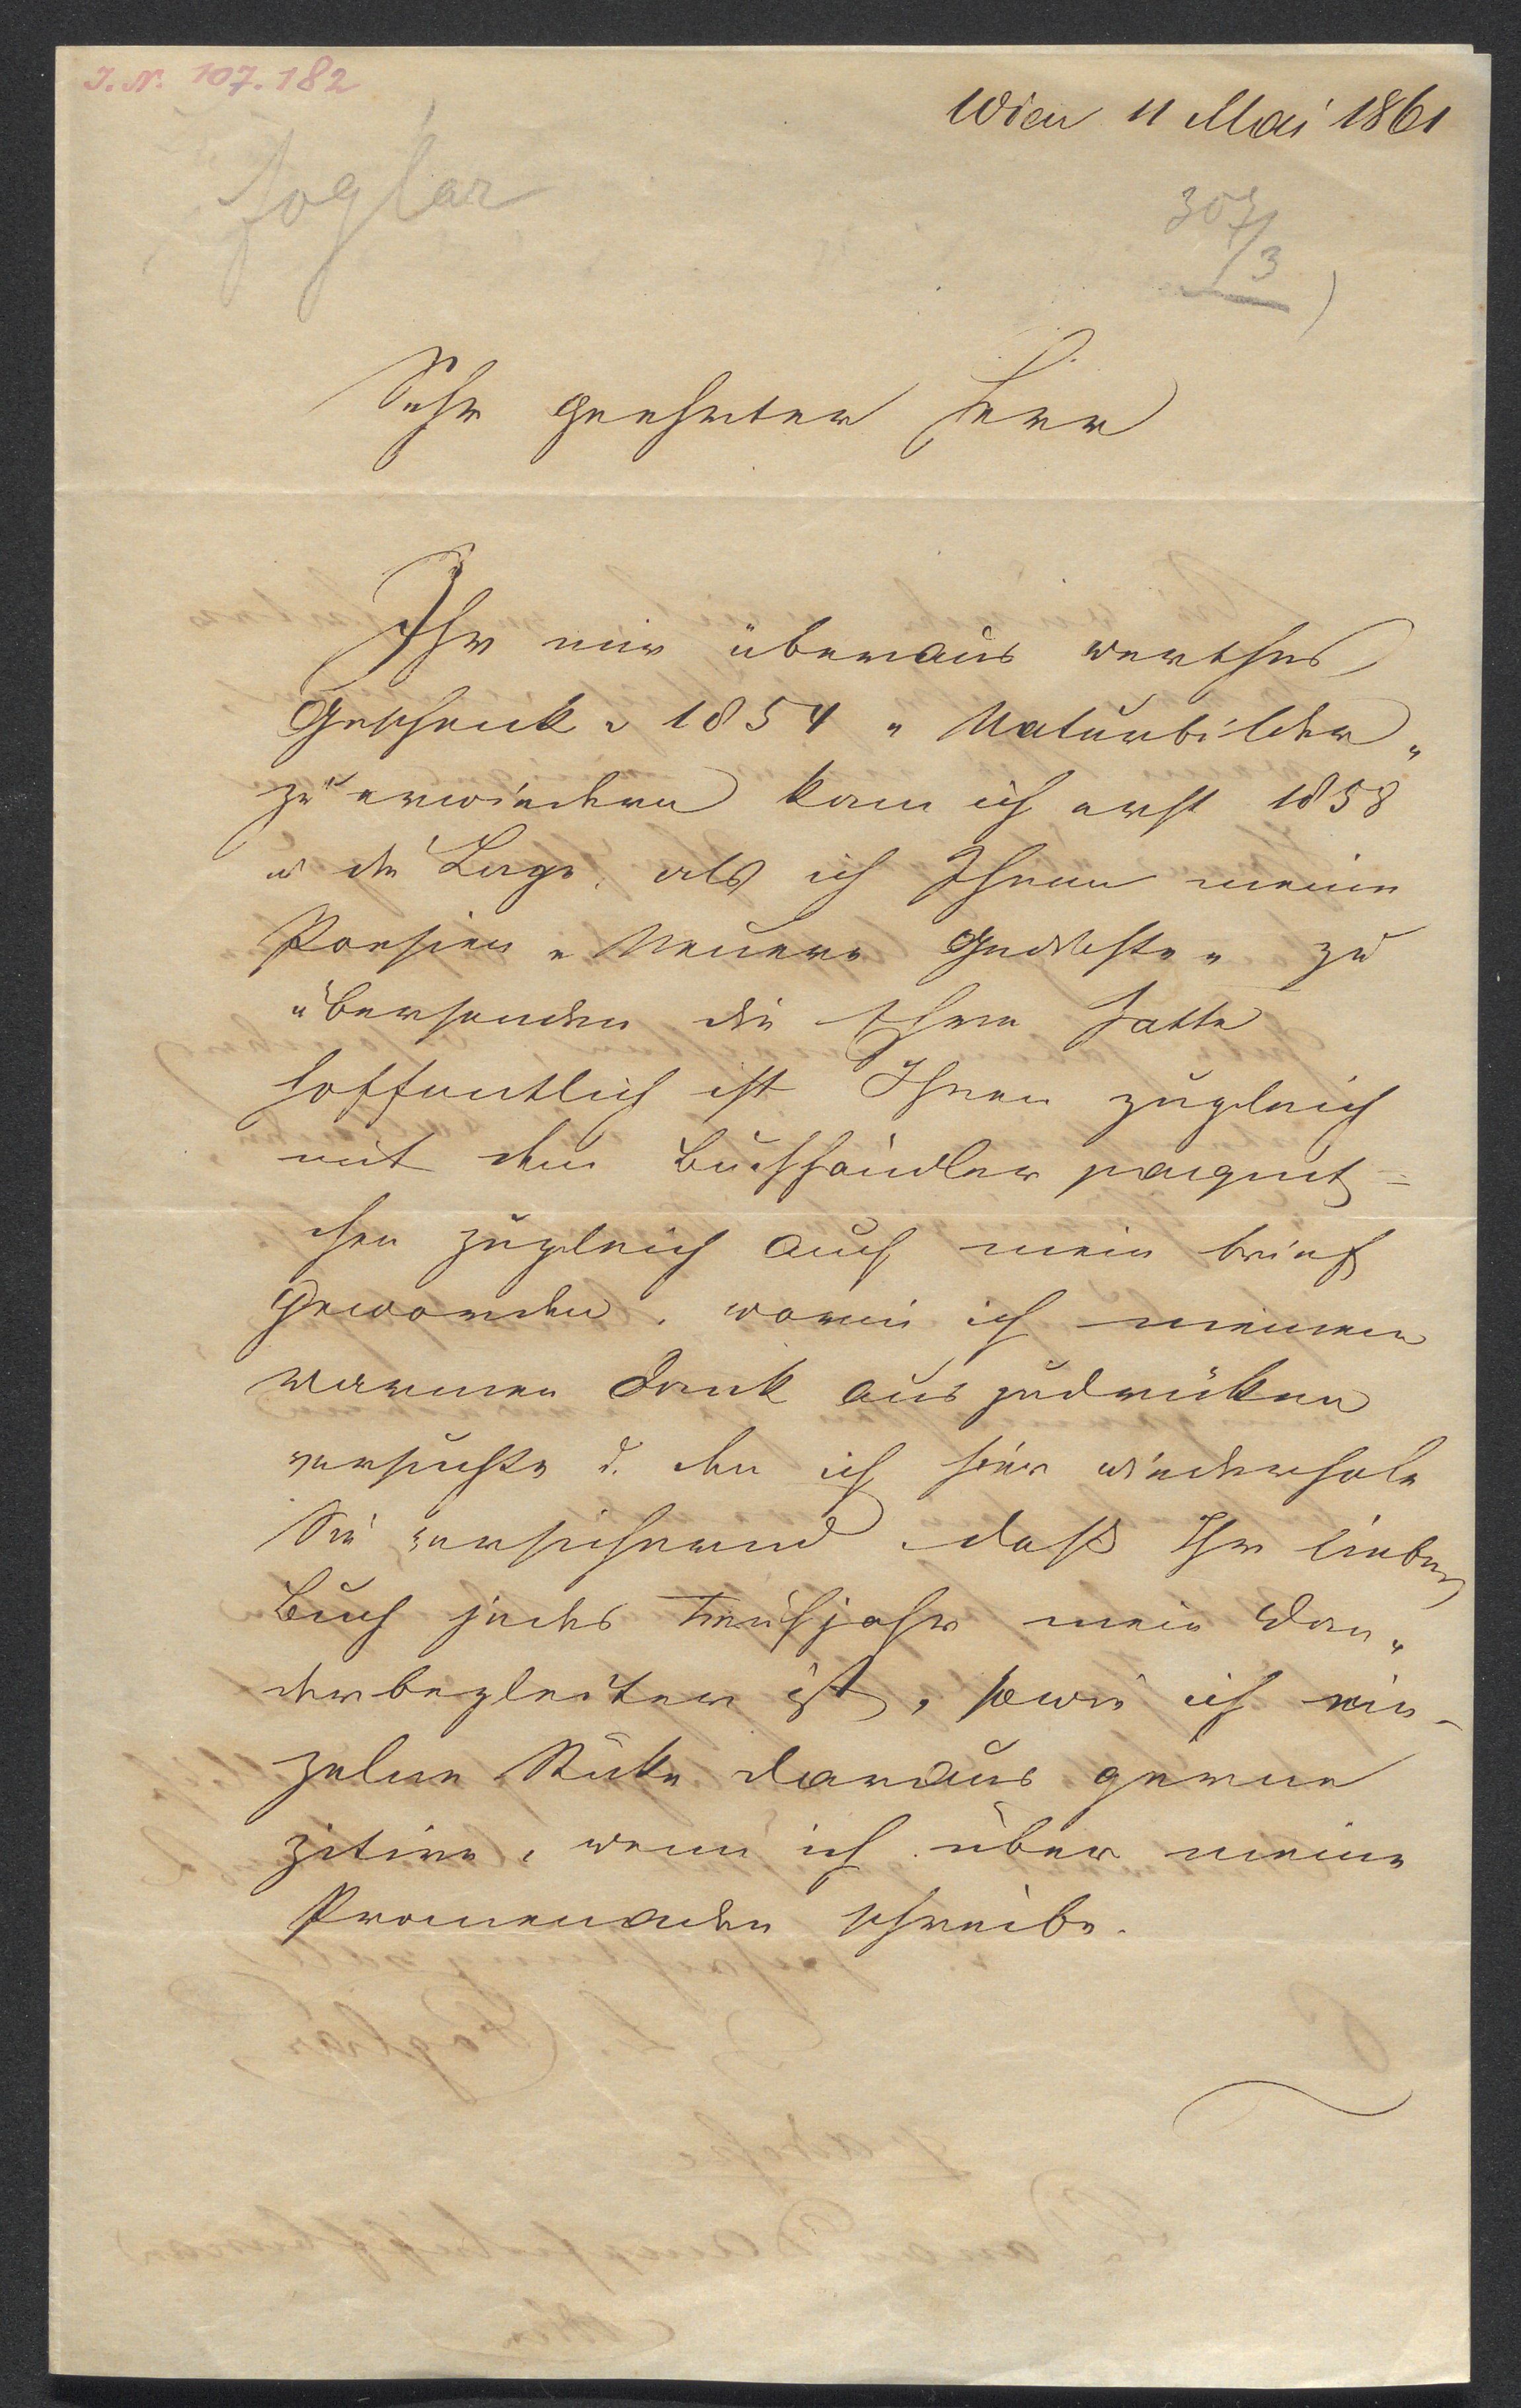 J. N. 107.182
Wien 11 Mai 1861
Foglar
307/3
Sehr geehrter Herr
Ihr mir überaus werthes
Geschenk v 1854 „ Naturbilder „
zu erwiedern kam ich erst 1858
in die Lage, als ich Ihnen meine
Poesien „ Neuere Gedichte „ zu
übersenden die Ehre hatte
hoffentlich ist Ihnen zugleich
mit dem Buchhändler paquet=
chen zugleich auch mein brief
geworden, worin ich meinen
warmen Dank auszudrüken
versuchte u. den ich hier wiederhole
Sie versichernd, daß Ihr liebes
Buch jedes Frühjahr mein Wan„
derbegleiter ist, sowie ich ein-
zelne Stüke daraus gerne
zitire, wenn ich über meine
Promenaden schreibe.